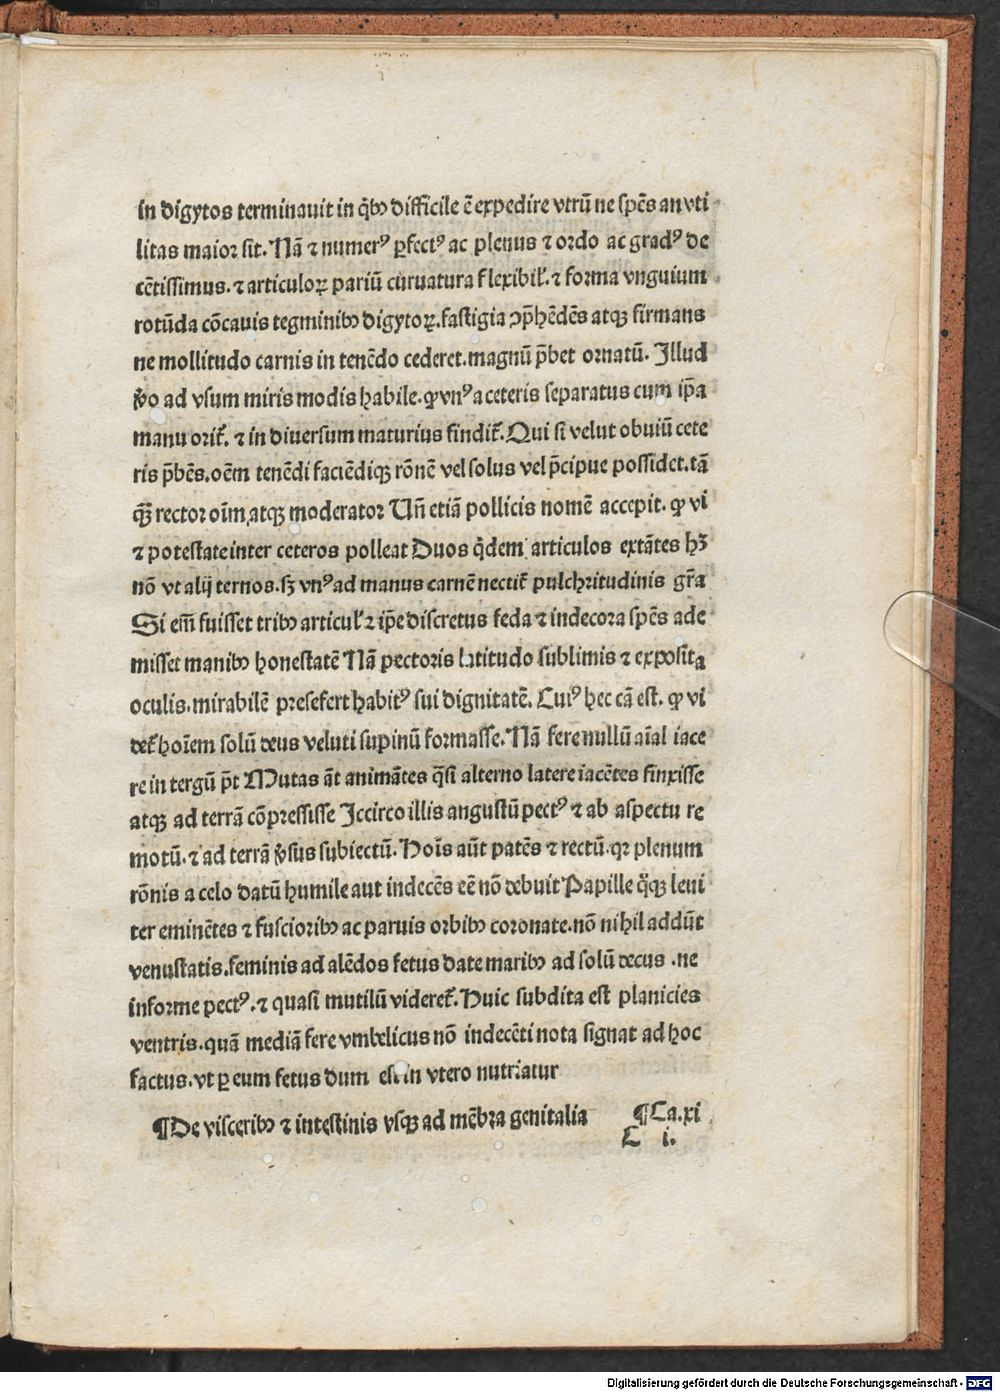 in digytos terminauit in q̄ibꝫ difficile ē expedire vtrū ne spēs an vti
litas maior sit. Nā ⁊ numerꝰ ꝑfectꝰ ac plenus ⁊ ordo ac gradꝰ de
cētissimus. ⁊ articuloꝝ pariū curuatura flexibil'. ⁊ forma vnguium
rotūda cōcauis tegminibꝫ digytoꝝ. fastigia ꝯp̄hēdēs atqꝫ firmans
ne mollitudo carnis in tenēdo cederet. magnū p̄bet ornatū. Illud
v̊o ad vsum miris modis habile. ꝙ vnꝰ a ceteris separatus cum ip̄a
manu orit᷑. ⁊ in diuersum maturius findit᷑. Qui si velut obuiū cete
ris p̄bēs. oēm tenēdi faciēdiqꝫ rōnē vel solus vel p̄cipue possidet. tā
qꝫ̄ rector oīm, atqꝫ moderator Un̄ etiā pollicis nomē accepit. ꝙ vi
⁊ potestate inter ceteros polleat Duos q̇dem articulos extātes hꝫ
nō vt alij ternos. sꝫ vnꝰ ad manus carnē nectit᷑ pulchritudinis gr̄a
Si em̄ fuisset tribꝫ articul' ⁊ ip̄e discretus feda ⁊ indecora spēs ade
misset manibꝫ honestatē Nā pectoris latitudo sublimis ⁊ exposita
oculis. mirabilē presefert habitꝰ sui dignitatē. Cuiꝰ hec cā est. ꝙ vi
det᷑ hoīem solū deus veluti supinū formasse. Nā fere nullū aīal iace
re in tergū p̄t Mutas āt animātes q̄si alterno latere iacētes finxisse
atqꝫ ad terrā cōpressisse Iccirco illis angustū pectꝰ ⁊ ab aspectu re
motū. ⁊ ad terrā v̊sus subiectū. Hoīs aūt patēs ⁊ rectū. qꝛ plenum
rōnis a celo datū humile aut indecēs eē nō debuit Papille q̊qꝫ leui
ter eminētes ⁊ fuscioribꝫ ac paruis orbibꝫ coronate. nō nihil addūt
venustatis. feminis ad alēdos fetus date maribꝫ ad solū decus .ne
informe pectꝰ. ⁊ quasi mutilū videret᷑. Huic subdita est planicies
ventris. quā mediā fere vmbelicus nō indecēti nota signat ad hoc
factus. vt ꝑ eum fetus dum est in vtero nutriatur
¶De visceribꝫ ⁊ intestinis vsqꝫ ad mēbra genitalia ¶Ca. xi
C i.
Digitalisierung gefördert durch die Deutsche Forschungsgemeinschaft - DFG